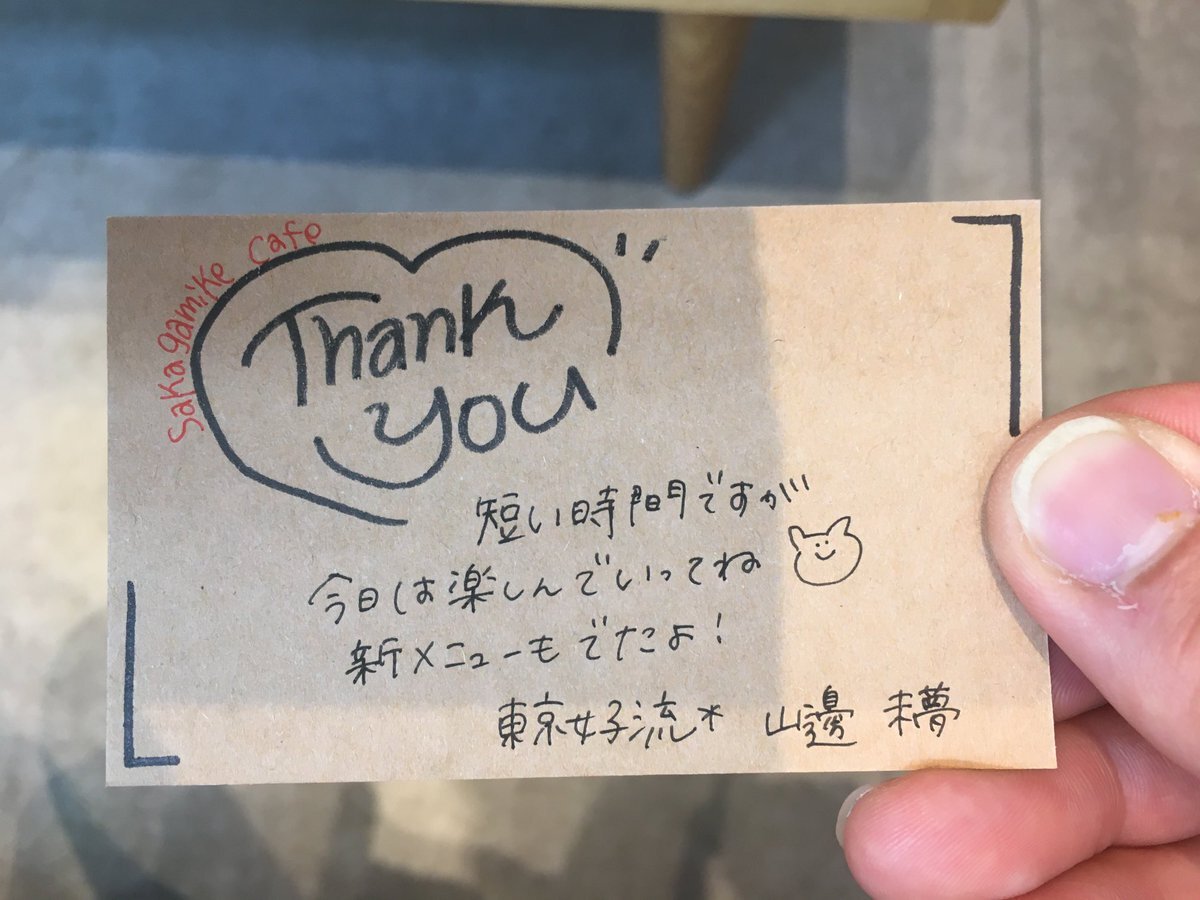 Sakagamike Cafe
Thank
you
短い時間ですが
今日は楽しんでいってね
新メニューもでたよ!
東京女子流* 山邊 未夢